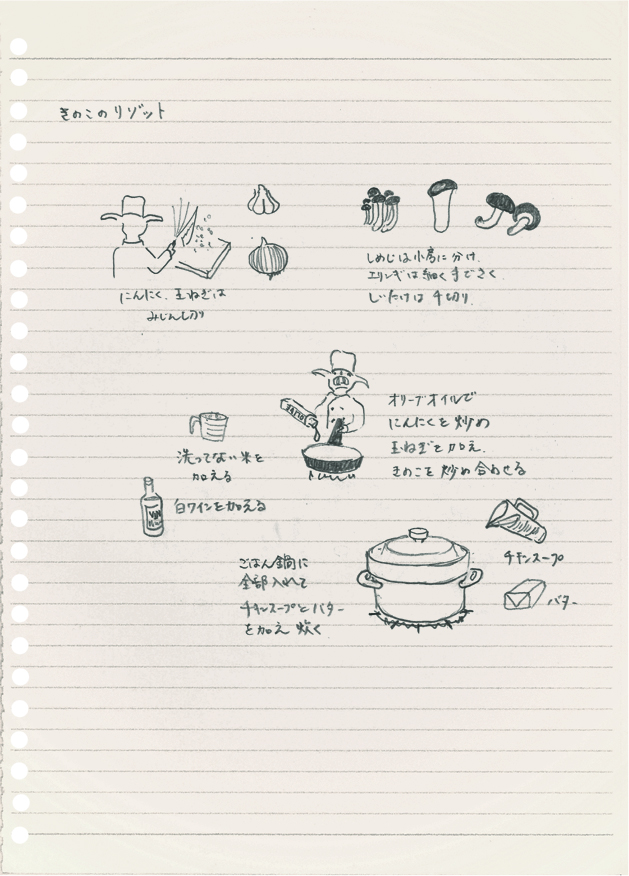 きのこのリゾット
にんにく、玉ねぎは
みじん切り
しめじは小房に分け、
エリンギは細く手でさく
しいたけは 千切り.
オリーブオイルで
にんにくを炒め
玉ねぎを加え.
きのこを炒め合わせる
洗ってない米を
加える
白ワインを加える
ごはん鍋に
全部入れて
チキンスープとバター
を加え 炊く
チキンスープ
バター